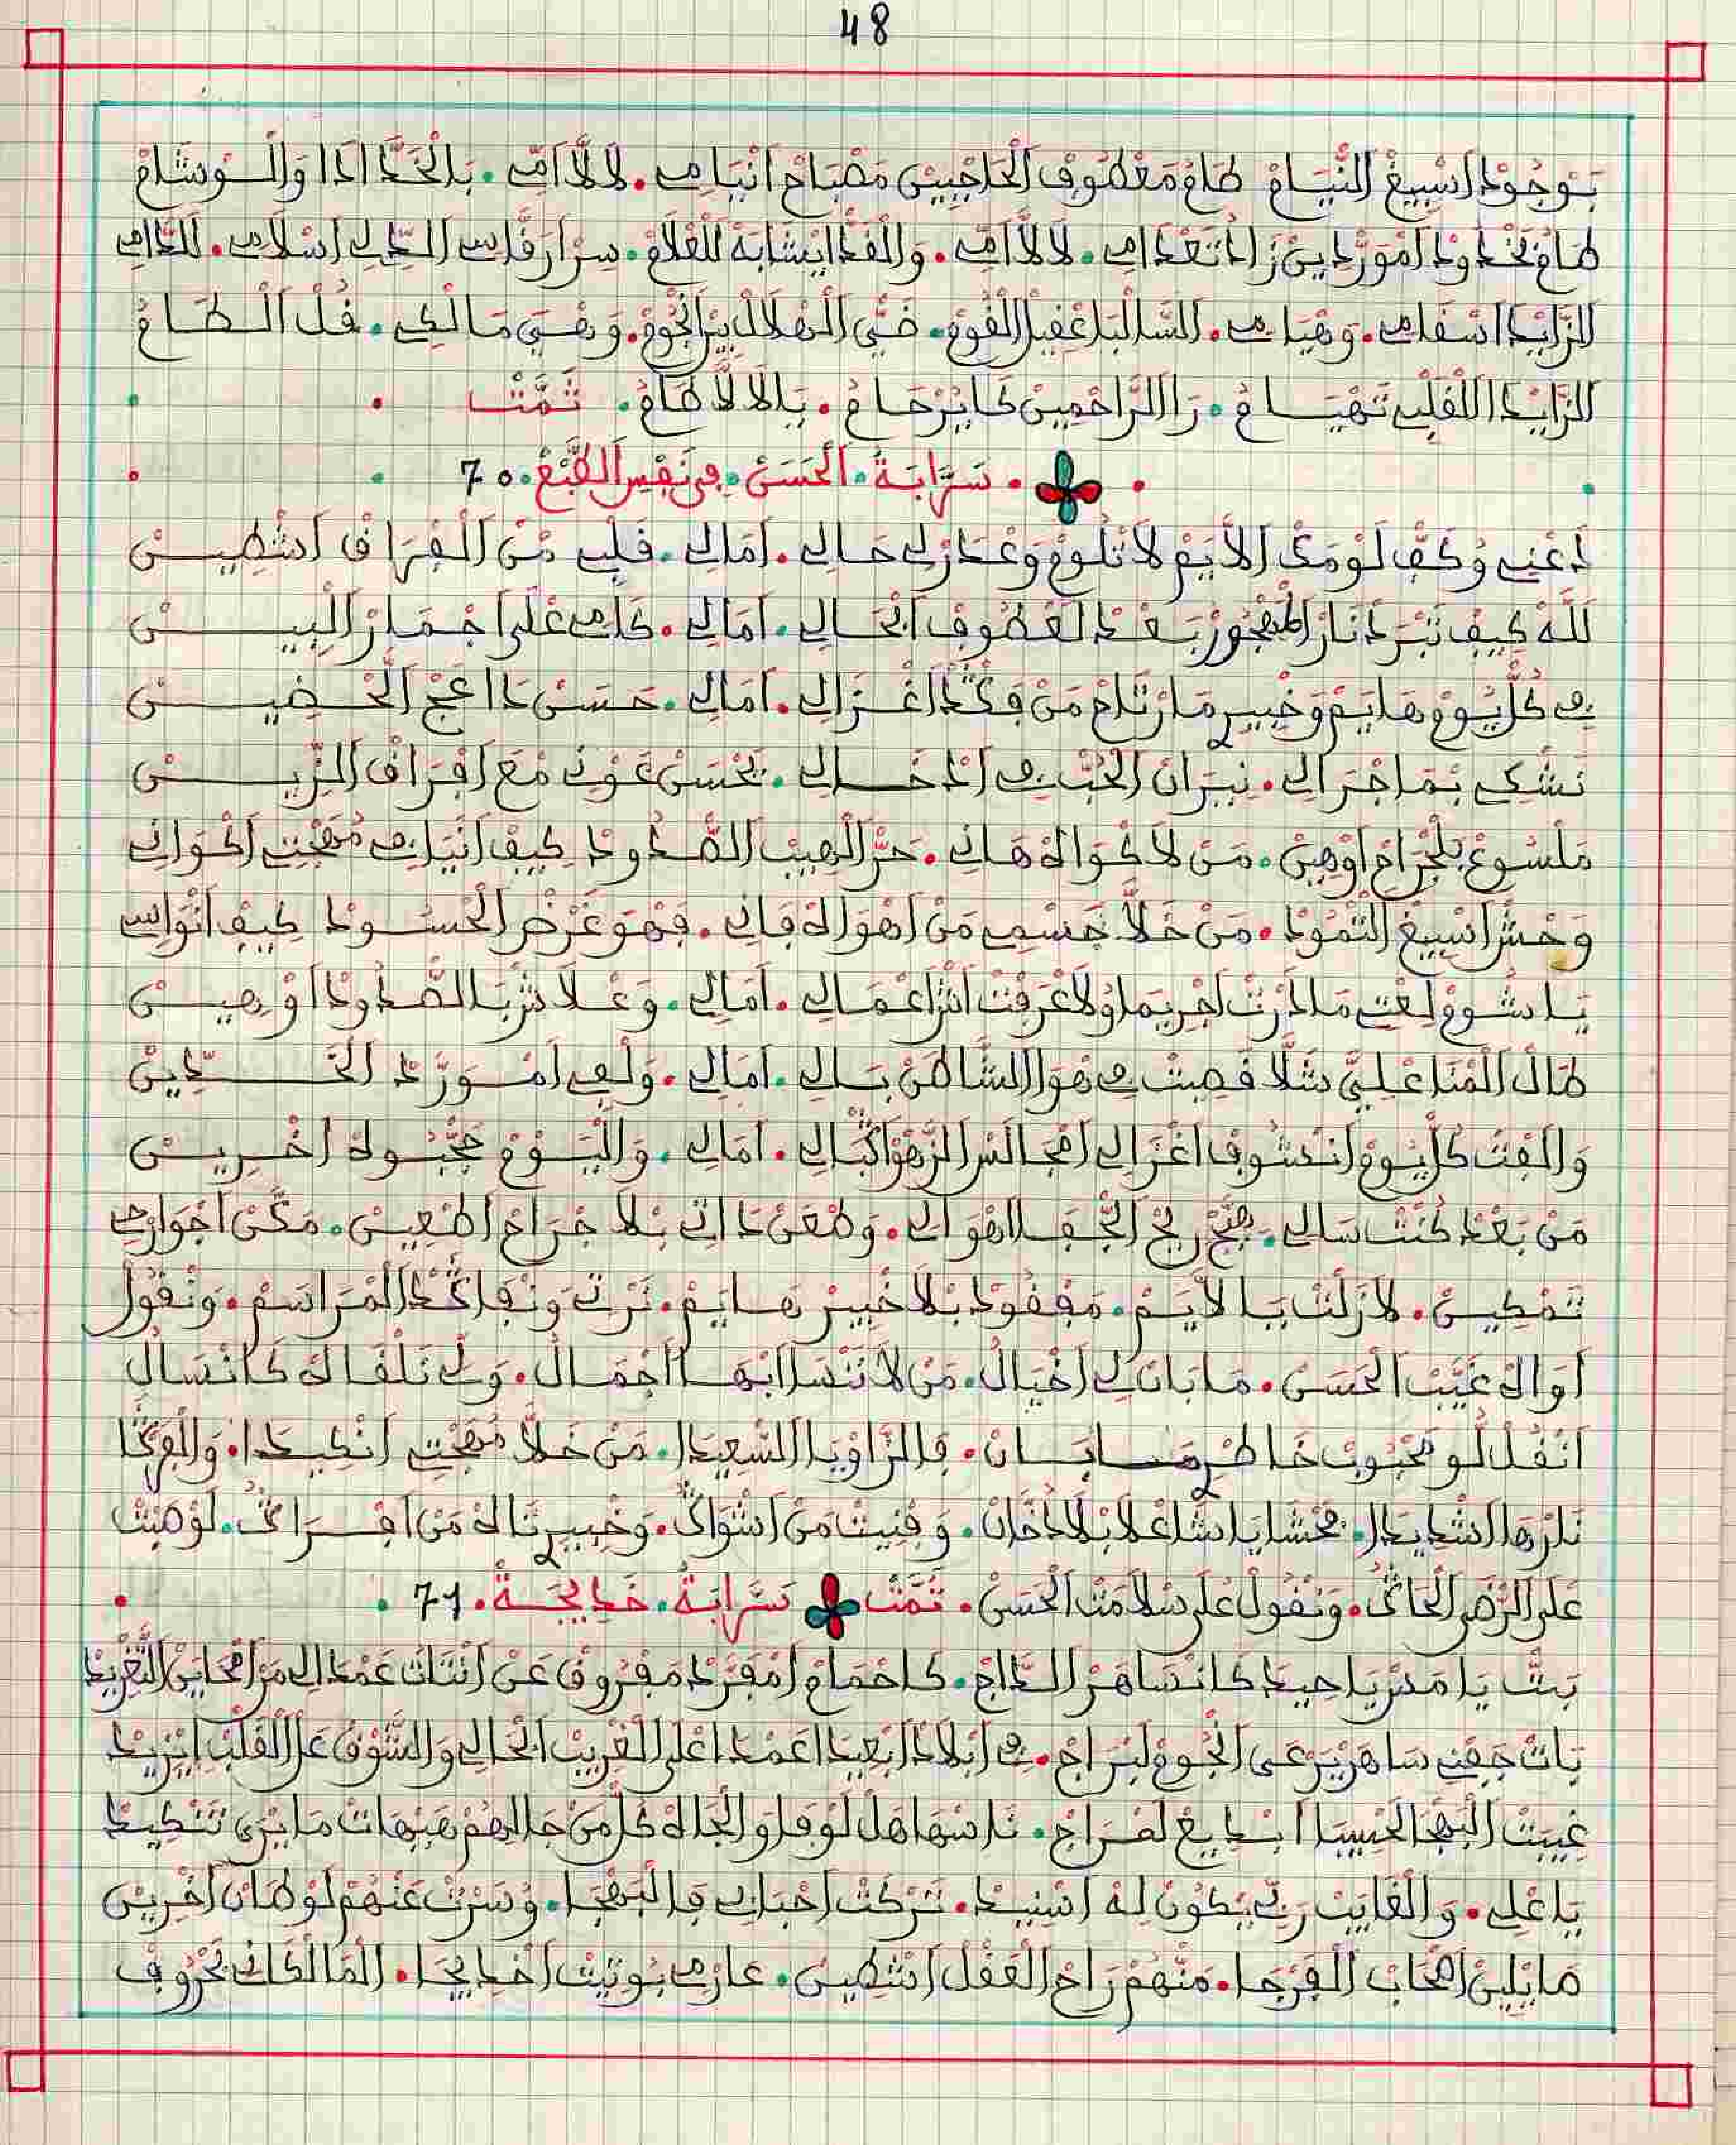 48
بوجود اسبيغ النيام طام معطوف الحاجبين مصباح انيامي. لالا امي. بالخد اذا والوشام
طام بخدود امورديين زاد تعدامي. لالا امي. والقد ايشابه للعلام. سرار قاسي الدي اسلامي. للدامي
الزايد اسقامي. وهيامي. السالبا عقيل القوم. ضي الهلال بين انجوم. وهي مالكي. قل الطام
الزايد القلبي تهيام. را الراحمين كايرحام. يالالا طام. تمت
سرابة. الحسن. في نفس الطبع. 70
دعني وكف لومك الايم لا تلوم وعذر لي حالي. امالي. قلبي من الفراق اشطين
لله كيف تبرد نار المهجور بعد لعطوف انحالي. امالي. كامي على اجمار البين
في كل يوم هايم وخبير ما رتاح من فكد اغزالي. امالي. حسن دا اعج الحضين
نشكي بما جرالي. نيران الحب في ادخالي. يحسن عوني مع افراق الزين
ملسوع بلجرام اوهين. من لا كواه هاني. حر الهيب الصدود كيف انيلي مهجتي اكواني
وحش اسبيغ التمود. من خلا جسمي من اهواه فاني. فهو غرض الحسود كيف انواسي
يا شوم لغتي ما درت اجريما ولا عرفت انش اعمالي. امالي. وعلاش يا الصدود اوهين
طال المنا علي شلا قصيت في هوا الشاطن بالي. امالي. ولفي امورد الخدين
والفت كل يوم انعشوف اغزالي امجالس الزهو اكبالي. امالي. واليوم حجبوه اخرين
من بعد كنت سالي. هيج ريح الجفا اهوالي. وطعن داتي بلا جراح اطعين. مكن اجوارحي
تمكين. لا زلت يا لايم. مفقود بلا خبير هايم. نرتي ونفاكد المراسم. ونقول
اواه غيب الحسن. ما بان لي اخيال. من لا ننسا ابها اجمال. ولي نلقاه كانسال
انقل لو محبوب خاطر ما بان. فالزاويا السعيدا. من خلا مهجتي انكيدا. والفركا
نارها الشديدا. محشايا شاعلا بلا دخان. وفنيت من اشواك. وخبير تاه من افراك. لو صبت
على الرضى الحاك. ونقول على سلامت الحسن. تمت سرابة. خديجة. 71
بت يا مدريا حيد كانساهر الداج. كاحمام امفرد مفروق عن انتات عمدا لي من امحاين التغريد
بات جفني ساهر يرعى انجوم لبراج. في ابلاد ابعيدا عمدا على الغريب الحالي والشوق على القلب ايزيد
غيبت البهجا الحبيبا ابديع لمراج. ناسها هل لوفا والجاه كل من جا الهم هيهات ما يرى تنكيد
يا علي. والغايب ربي يكون له اسنيد. تركت احبابي فالبهجا. وسرت عنهم لوطان اخرين
مابلين اصحاب الفرجا. منهم راح العقل اشطين. عارم بوتيت اخديجا. الما لكاني بحروف